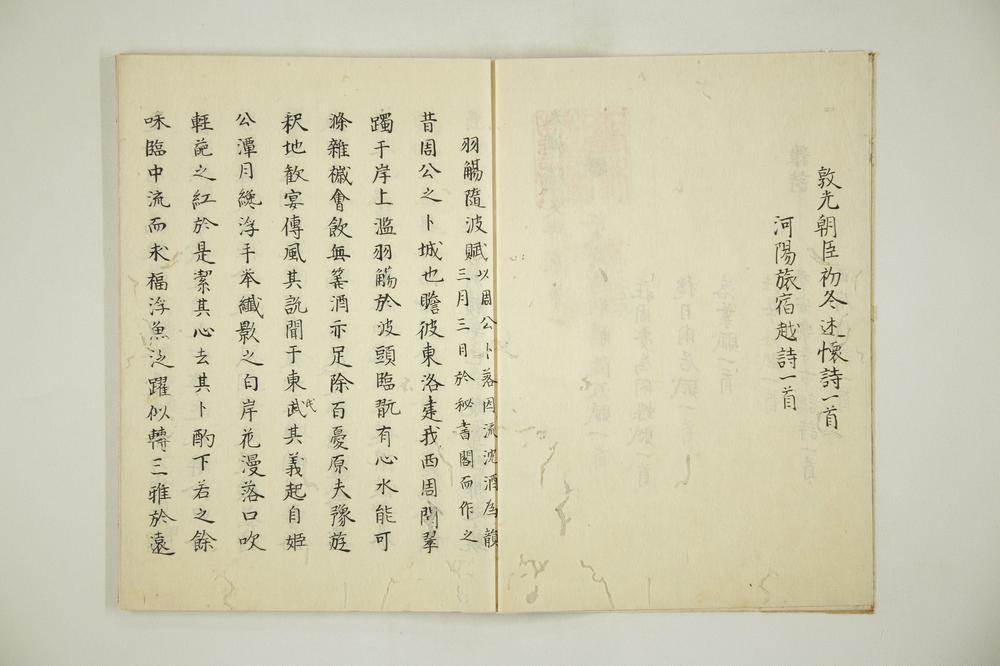 敦光朝臣初冬述懐詩一首
河陽旅宿越詩一首
羽觴隨波賦
以周公卜落因流沈酒為韻
三月三日於秘書閣而作之
昔周公之卜城也瞻彼東洛建我西周閇翠
躅于岸上濫羽觴於波頭臨翫有心水能可
滌雜禊會飲無筭酒亦足除百憂原夫豫遊
釈地歓宴傳風其説聞于東武其義起自姫
氏
公潭月纔浮手挙纎影之白岸花漫落口吹
軽葩之紅於是潔其心去其卜酌下若之餘
味臨中流而求福浮魚泛躍似轉三雅於遠